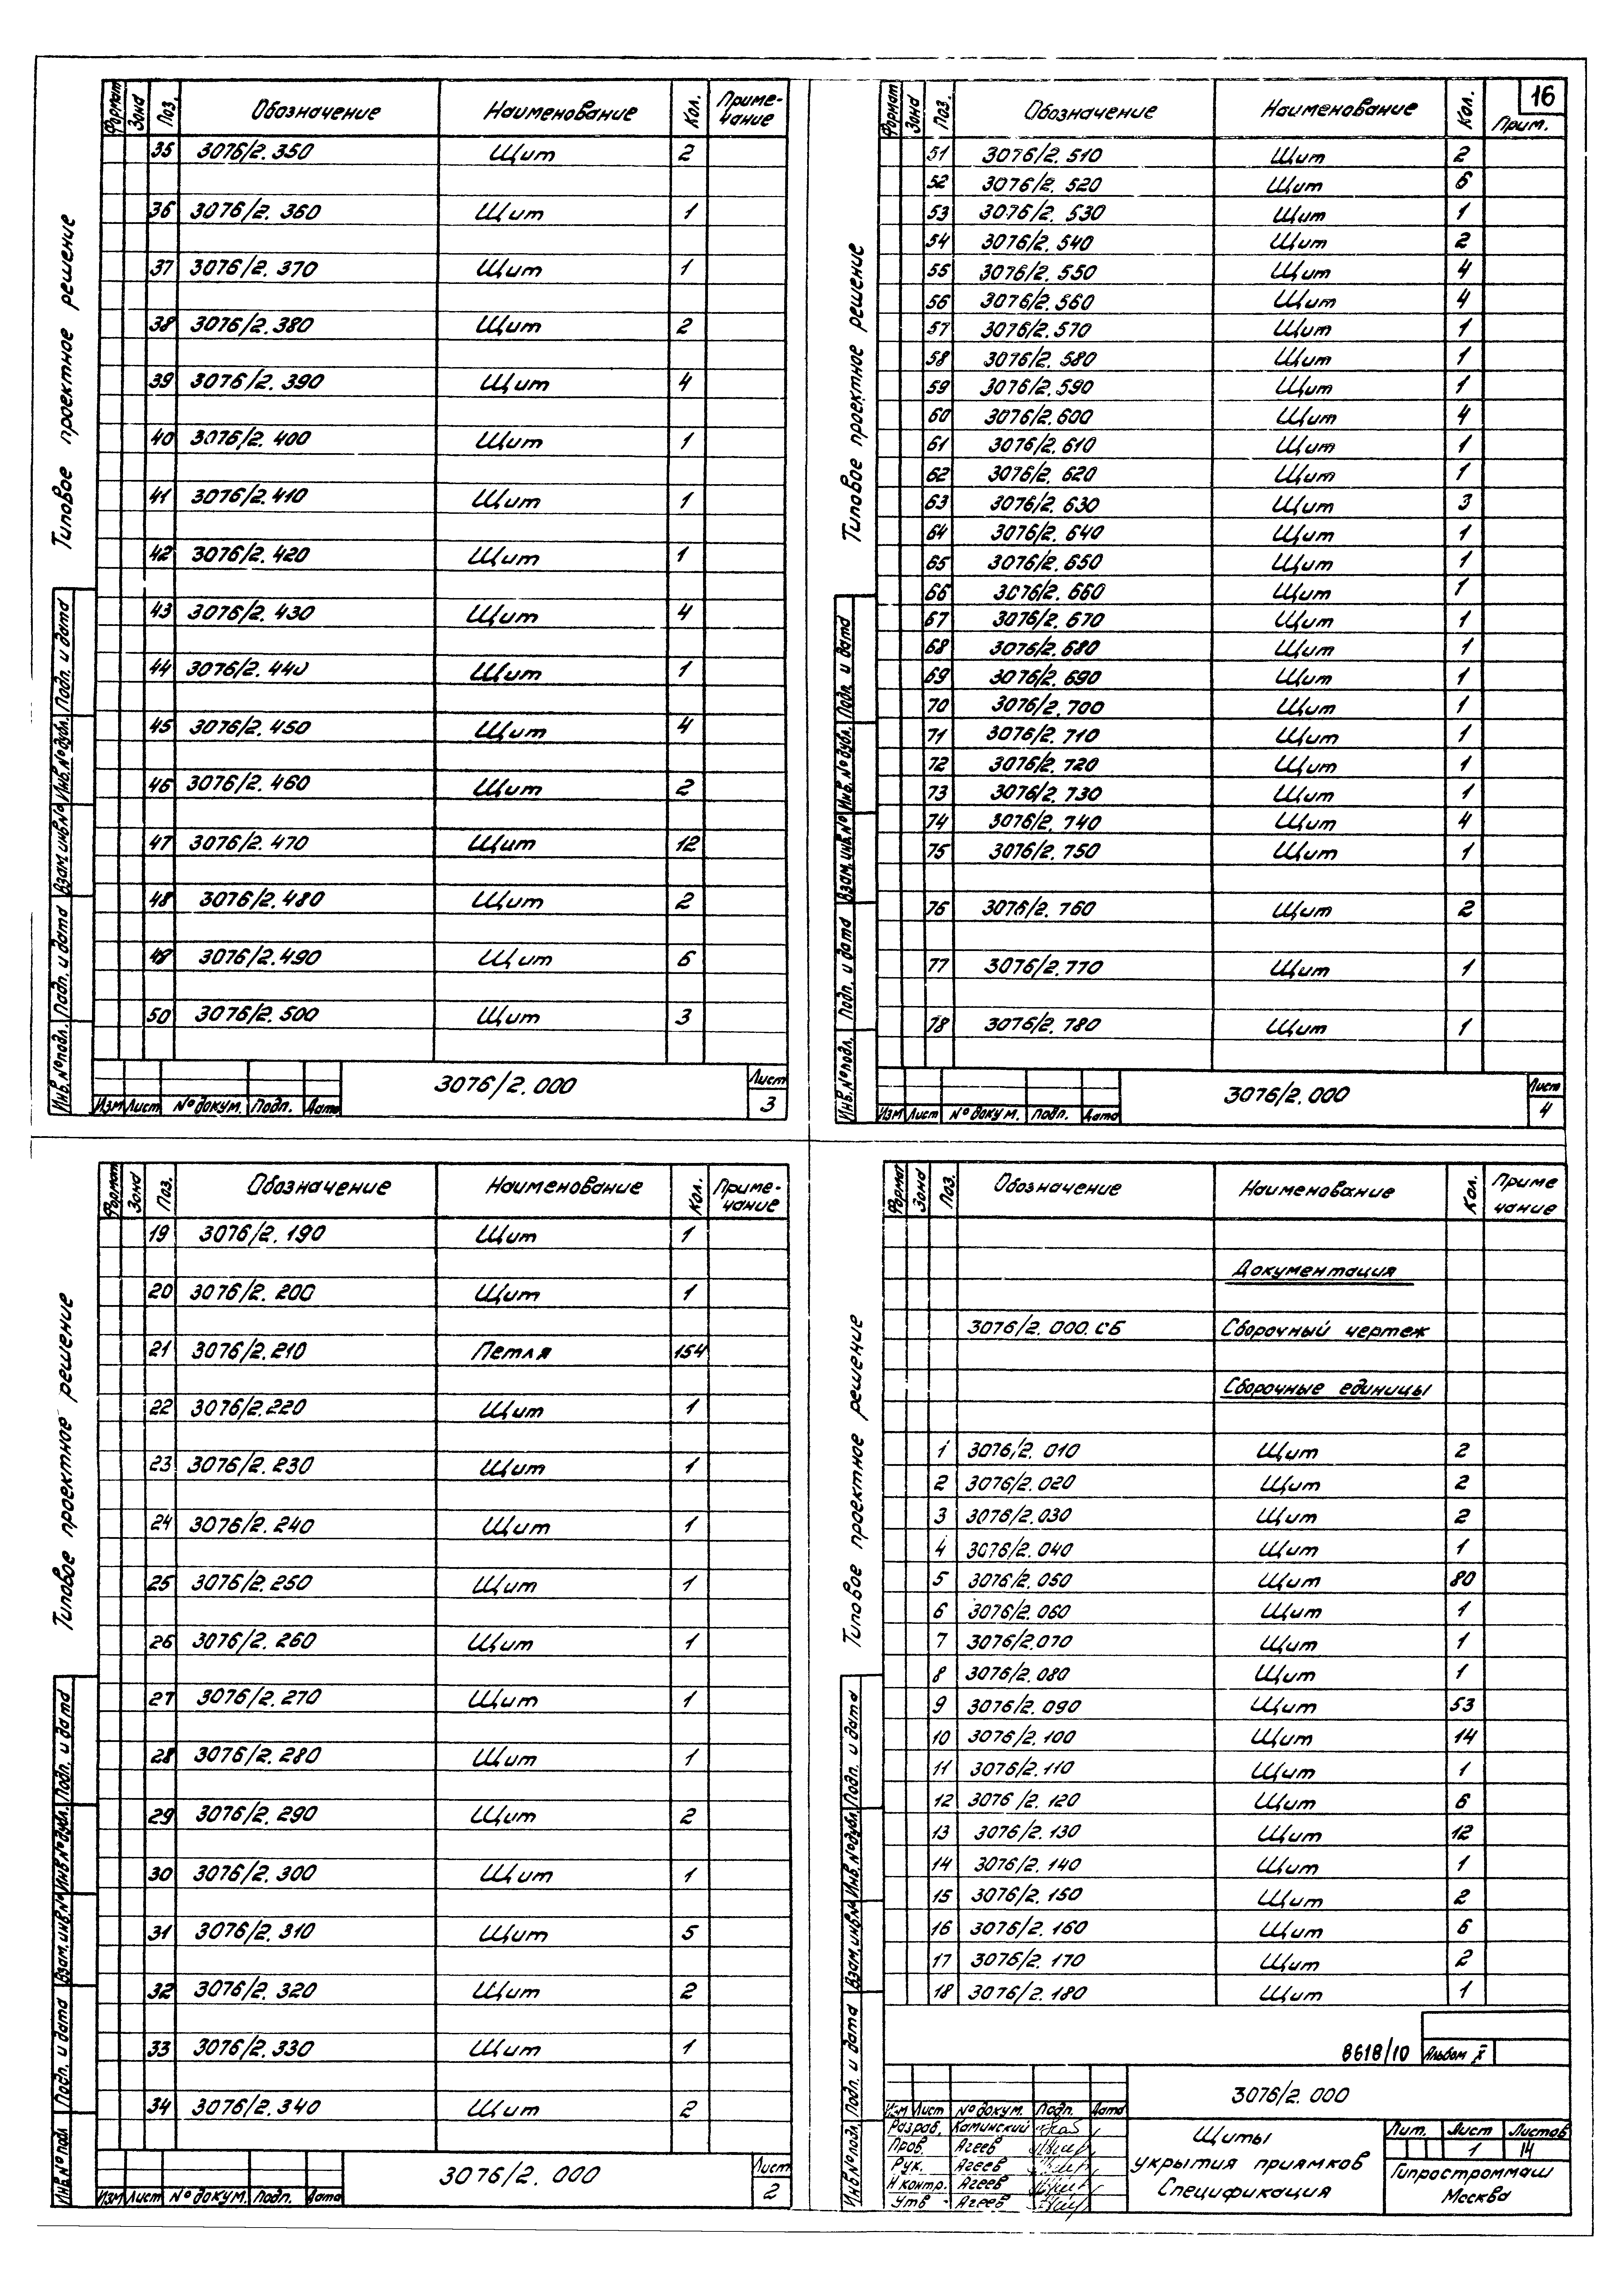 Типовое проектное решение
Формат Зона Поз. Обозначение Наименование Кол. Приме-чание
35 3076/2.350 Щит 2
36 3076/2.360 Щит 1
37 3076/2.370 Щит 1
38 3076/2.380 Щит 2
39 3076/2.390 Щит 4
40 3076/2.400 Щит 1
41 3076/2.410 Щит 1
42 3076/2.420 Щит 1
43 3076/2.430 Щит 4
44 3076/2.440 Щит 1
45 3076/2.450 Щит 4
46 3076/2.460 Щит 2
47 3076/2.470 Щит 12
48 3076/2.480 Щит 2
49 3076/2.490 Щит 6
50 3076/2.500 Щит 3
Инв.№подл. Подп. и дата Взам.инв.№ Инв.№дубл. Подп. и дата
Изм Лист №докум. Подп. Дата
3076/2.000
Лист
3
16
Типовое проектное решение
Формат Зона Поз. Обозначение Наименование Кол. Прим.
51 3076/2.510 Щит 2
52 3076/2.520 Щит 6
53 3076/2.530 Щит 1
54 3076/2.540 Щит 2
55 3076/2.550 Щит 4
56 3076/2.560 Щит 4
57 3076/2.570 Щит 1
58 3076/2.580 Щит 1
59 3076/2.590 Щит 1
60 3076/2.600 Щит 4
61 3076/2.610 Щит 1
62 3076/2.620 Щит 1
63 3076/2.630 Щит 3
64 3076/2.640 Щит 1
65 3076/2.650 Щит 1
66 3076/2.660 Щит 1
67 3076/2.670 Щит 1
68 3076/2.680 Щит 1
69 3076/2.690 Щит 1
70 3076/2.700 Щит 1
71 3076/2.710 Щит 1
72 3076/2.720 Щит 1
73 3076/2.730 Щит 1
74 3076/2.740 Щит 4
75 3076/2.750 Щит 1
76 3076/2.760 Щит 2
77 3076/2.770 Щит 1
78 3076/2.780 Щит 1
Инв.№подл. Подп. и дата Взам.инв.№ Инв.№дубл. Подп. и дата
Изм Лист №докум. Подп. Дата
3076/2.000
Лист
4
Типовое проектное решение
Формат Зона Поз. Обозначение Наименование Кол. Приме-чание
19 3076/2.190 Щит 1
20 3076/2.200 Щит 1
21 3076/2.210 Петля 154
22 3076/2.220 Щит 1
23 3076/2.230 Щит 1
24 3076/2.240 Щит 1
25 3076/2.250 Щит 1
26 3076/2.260 Щит 1
27 3076/2.270 Щит 1
28 3076/2.280 Щит 1
29 3076/2.290 Щит 2
30 3076/2.300 Щит 1
31 3076/2.310 Щит 5
32 3076/2.320 Щит 2
33 3076/2.330 Щит 1
34 3076/2.340 Щит 2
Инв.№подл. Подп. и дата Взам.инв.№ Инв.№дубл. Подп. и дата
Изм Лист №докум. Подп. Дата
3076/2.000
Лист
2
Типовое проектное решение
Формат Зона Поз. Обозначение Наименование Кол. Приме чание
Документация
3076/2.000.СБ Сборочный чертеж
Сборочные единицы
1 3076/2.010 Щит 2
2 3076/2.020 Щит 2
3 3076/2.030 Щит 2
4 3076/2.040 Щит 1
5 3076/2.050 Щит 80
6 3076/2.060 Щит 1
7 3076/2.070 Щит 1
8 3076/2.080 Щит 1
9 3076/2.090 Щит 53
10 3076/2.100 Щит 14
11 3076/2.110 Щит 1
12 3076/2.120 Щит 6
13 3076/2.130 Щит 12
14 3076/2.140 Щит 1
15 3076/2.150 Щит 2
16 3076/2.160 Щит 6
17 3076/2.170 Щит 2
18 3076/2.180 Щит 1
Инв.№подл. Подп. и дата Взам.инв.№ Инв.№дубл. Подп. и дата
8618/10 Альбом X
3076/2.000
Изм Лист №докум. Подп. Дата
Разраб. Каминский
Пров. Агеев
Рук. Агеев
Н контр. Агеев
Утв Агеев
Щиты
укрытия приямков
Спецификация
Лит. Лист Листов
1 14
Гипростроммаш
Москва